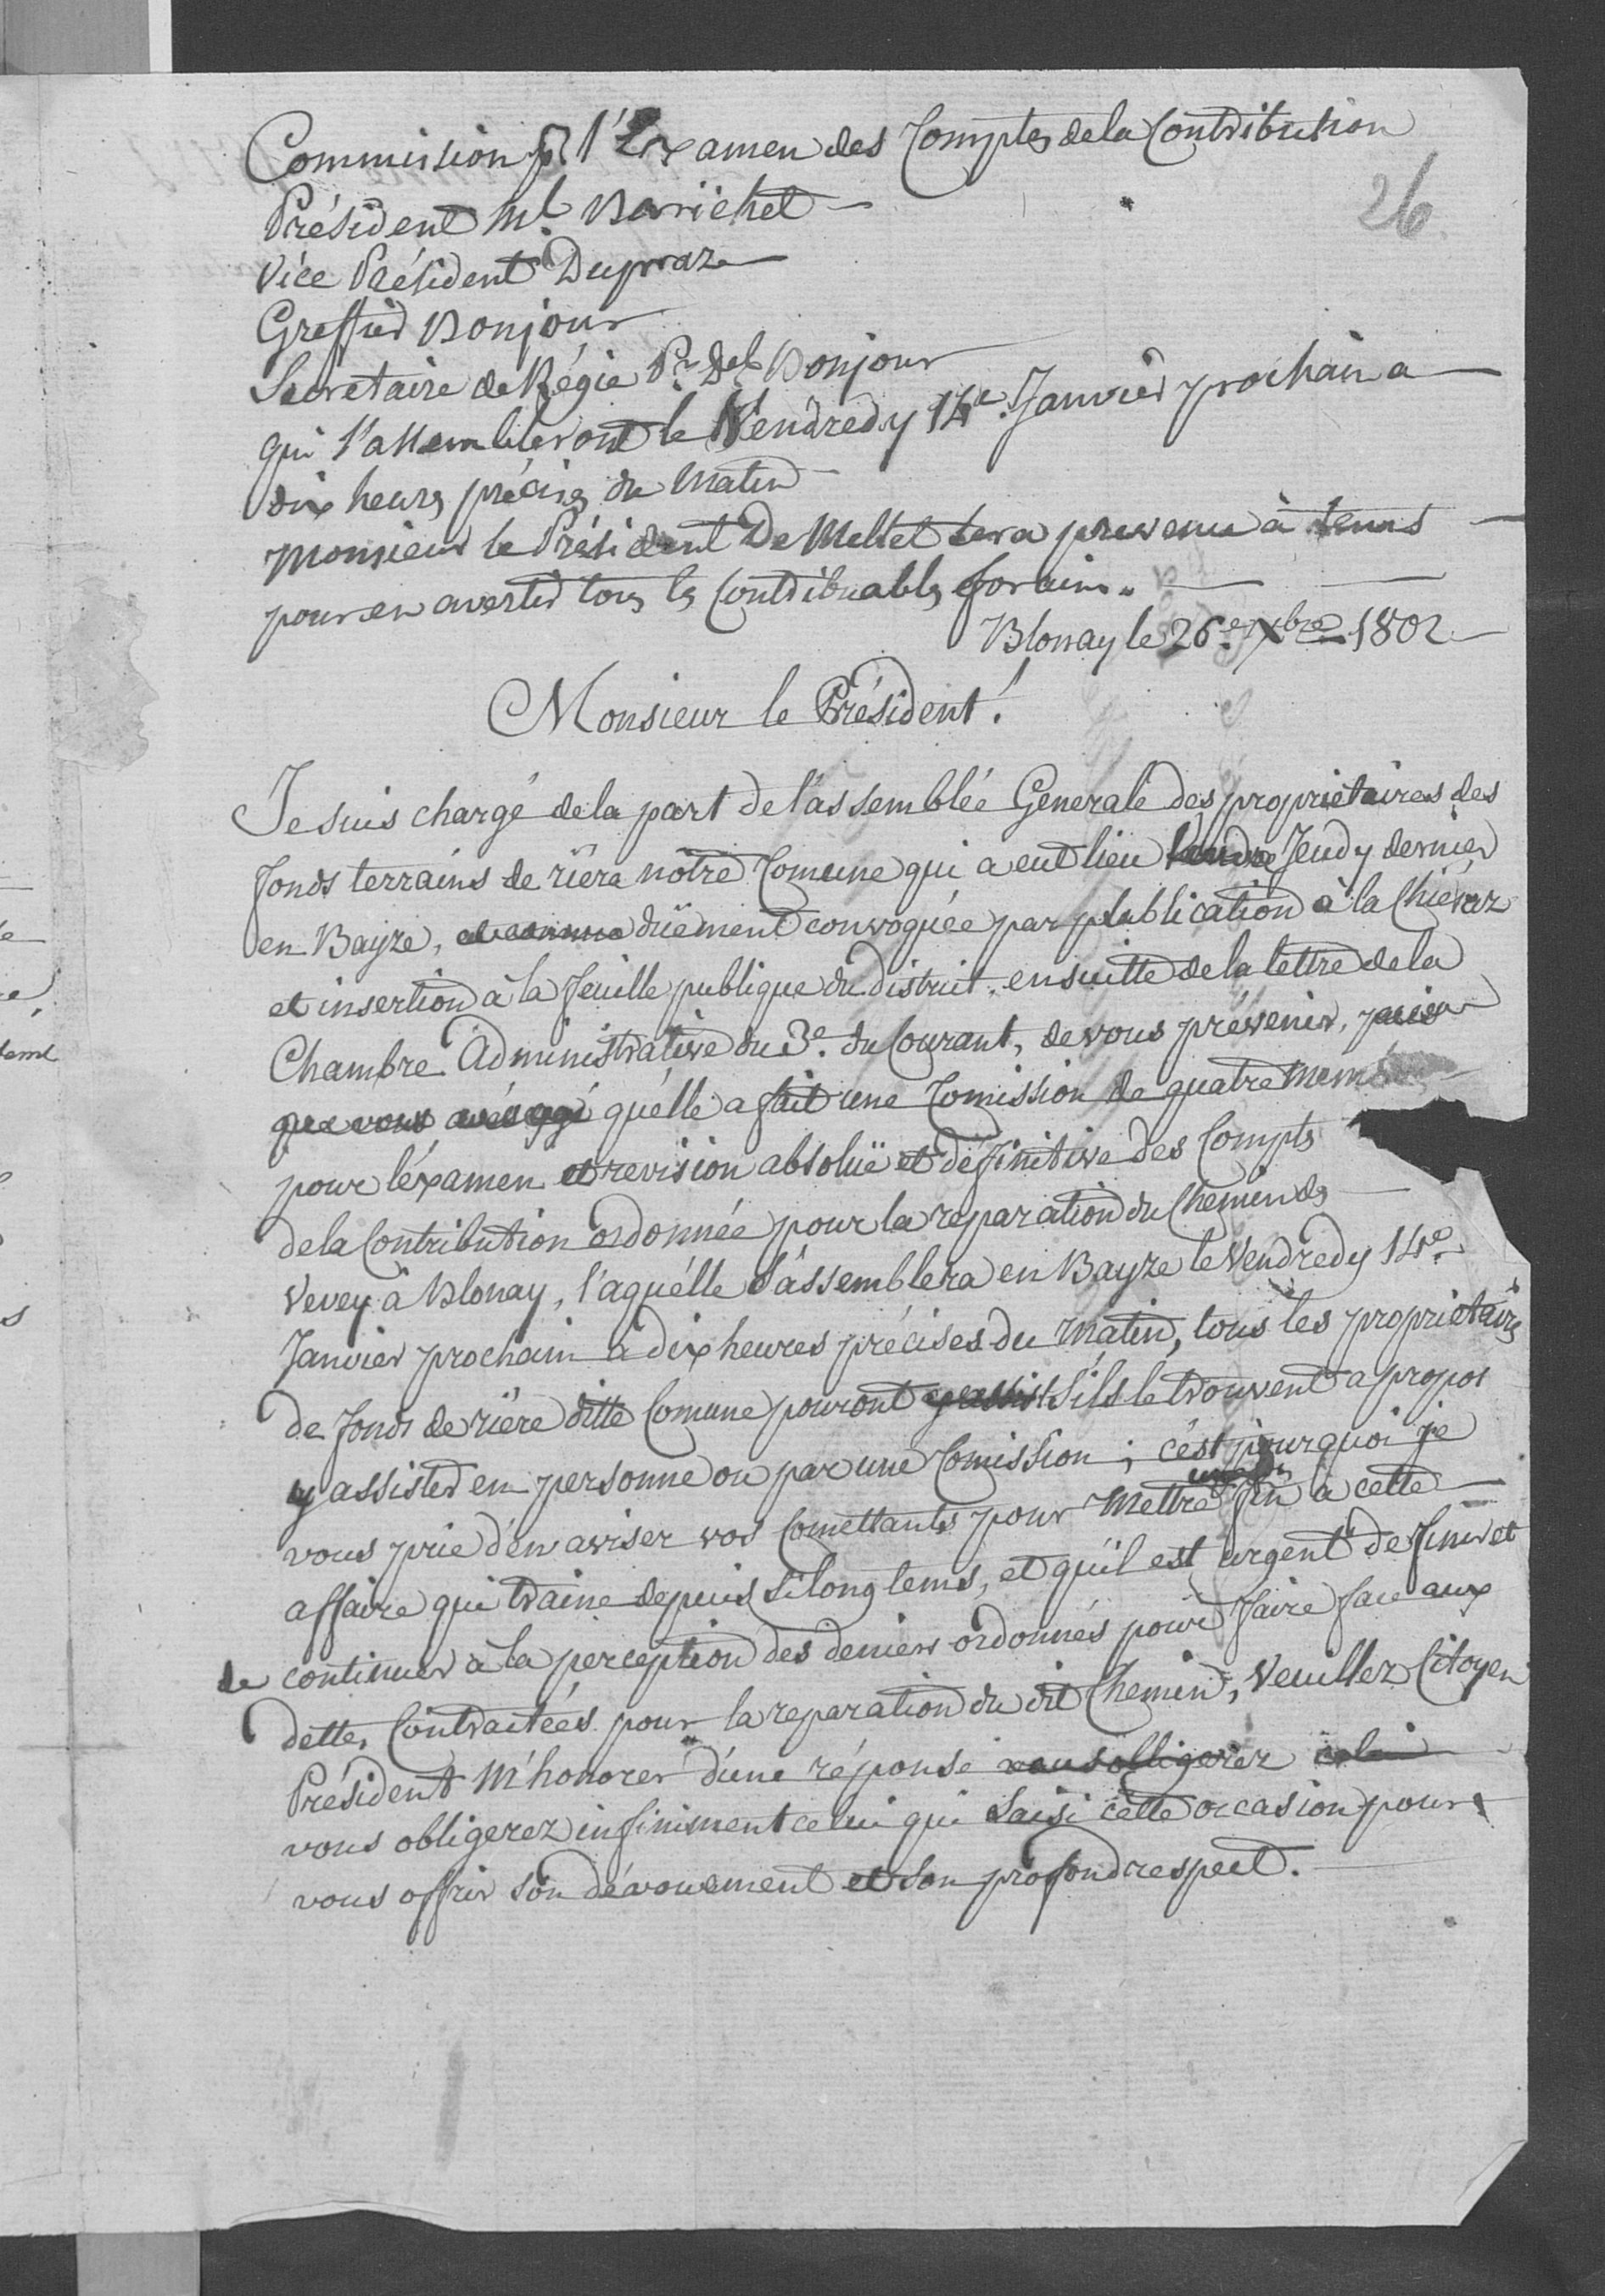 Commission p.r l'Examen des Comptes de la Contribution
26
Président Ml. Barrichel
Vice Président Dupraz
Greffier Bonjour
Secretaire de Régie Pre. Del. Bonjour
qui s'assembleront le Vendredy 14e. Janvier prochain a
dix heures précises du Matin
Monsieur le Président De Mellet sera prevenu à tems
pour en avertir tous les Contribuables forains.
Blonay le 26e Xbre 1802
Monsieur le Président!
Je suis chargé de la part de l'assemblée Generale des proprietaires des
fonds terrains de riére nôtre Comune qui a eut lieu Jeudy dernier
en Bayze, düement convoquée par publication à la Chiésaz
et insertion à la feuille publique du district. ensuitte de la lettre de la
Chambre Administrative du 3e. du Courant, de vous prévenir,
que vous avés qu'élle a fait une Comission de quatre Mem
pour l'éxamen et revision absolüe et définitive des Compts
de la Contribution ordonnée pour la reparation du Chemin de
Vevey à Blonay, l'aquélle s'assemblera en Bayze le Vendredy 14e.
Janvier prochain à dix heures précises du Matin, tous les proprietaires
de fonds de riére ditte Comune pouront s'ils le trouvent a propos
y assister en personne ou par une Comission; c'ést pourquoi je
vous prie d'én aviser vos Comettants pour Mettre une fin a cette
affaire qui traine depuis si long tems, et qu'il est urgent de finir et
de continuer à la perception des deniers ordonnés pour faire face aux
dettes Contractées pour la reparation du dit Chemin, Veuillez Citoyen
Président M'honorer d'une réponse vous obligeréz celui
vous obligerez infiniment celui qui saisi cette occasion pour
vous offrir son dévouement et son profond respect.